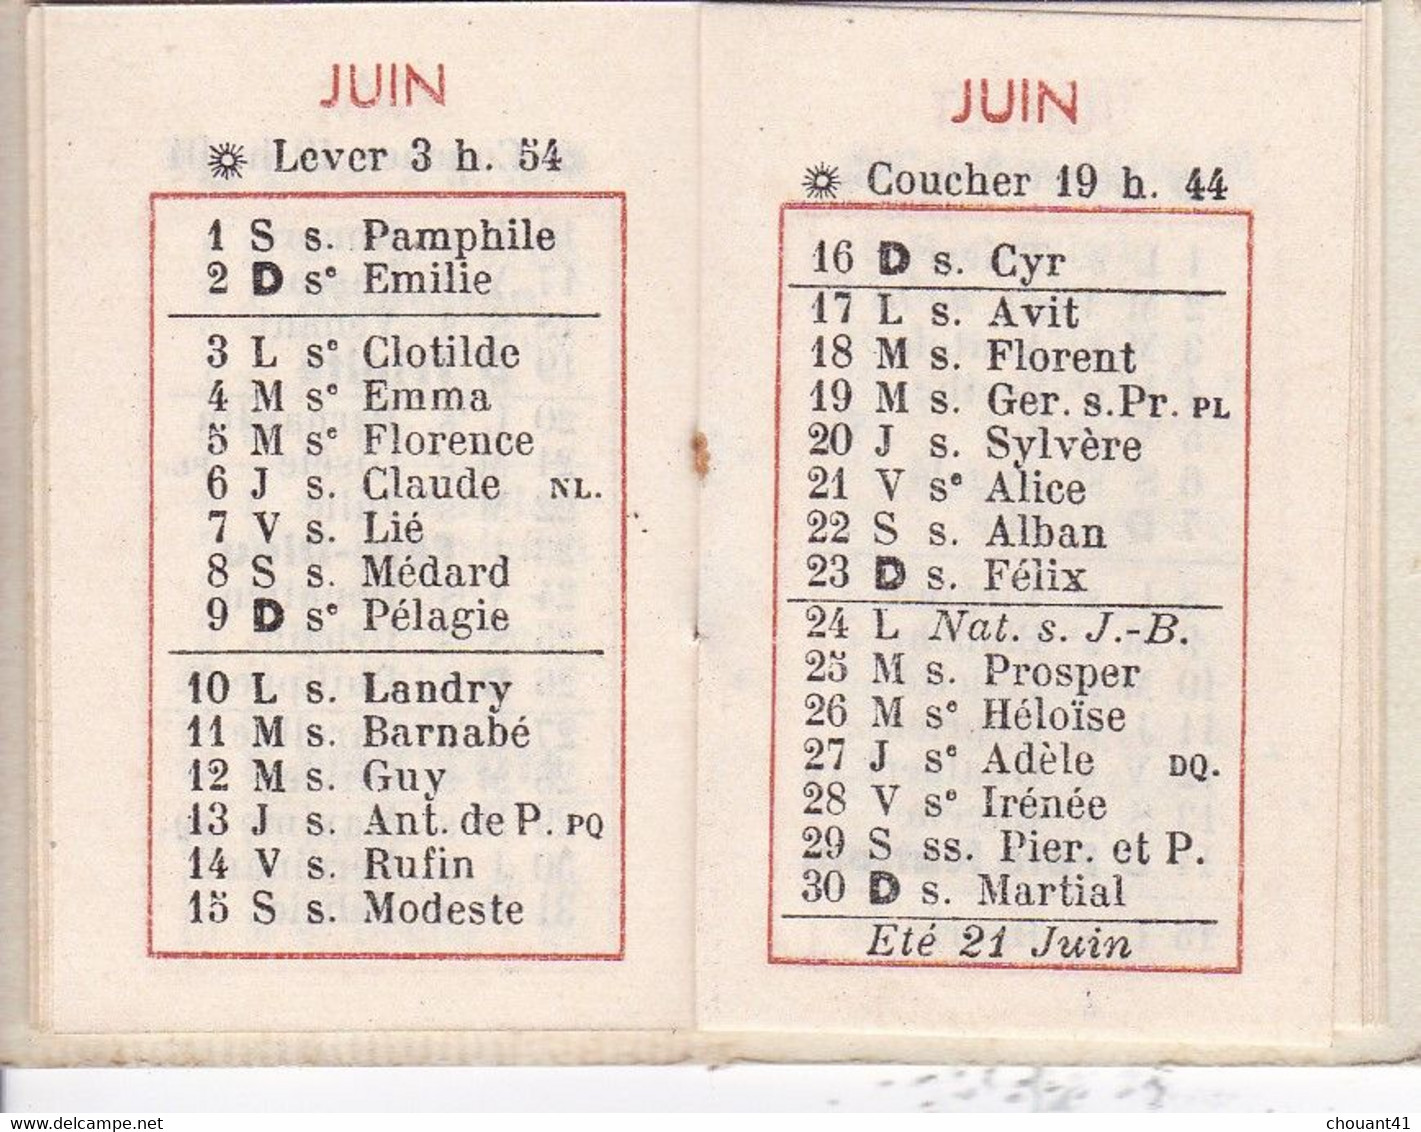 JUIN
Lever 3 h. 54
1 S s. Pamphile
2 D sᵉ Emilie
3 L sᵉ Clotilde
4 M sᵉ Emma
5 M sᵉ Florence
6 J s. Claude NL.
7 V s. Lié
8 S s. Médard
9 D sᵉ Pélagie
10 L s. Landry
11 M s. Barnabé
12 M s. Guy
13 J s. Ant. de P. PQ
14 V s. Rufin
15 S s. Modeste
JUIN
Coucher 19 h. 44
16 D s. Cyr
17 L s. Avit
18 M s. Florent
19 M s. Ger. s.Pr. PL
20 J s. Sylvère
21 V sᵉ Alice
22 S s. Alban
23 D s. Félix
24 L Nat. s. J.-B.
25 M s. Prosper
26 M sᵉ Héloïse
27 J sᵉ Adèle DQ.
28 V sᵉ Irénée
29 S ss. Pier. et P.
30 D s. Martial
Eté 21 Juin
chouant41